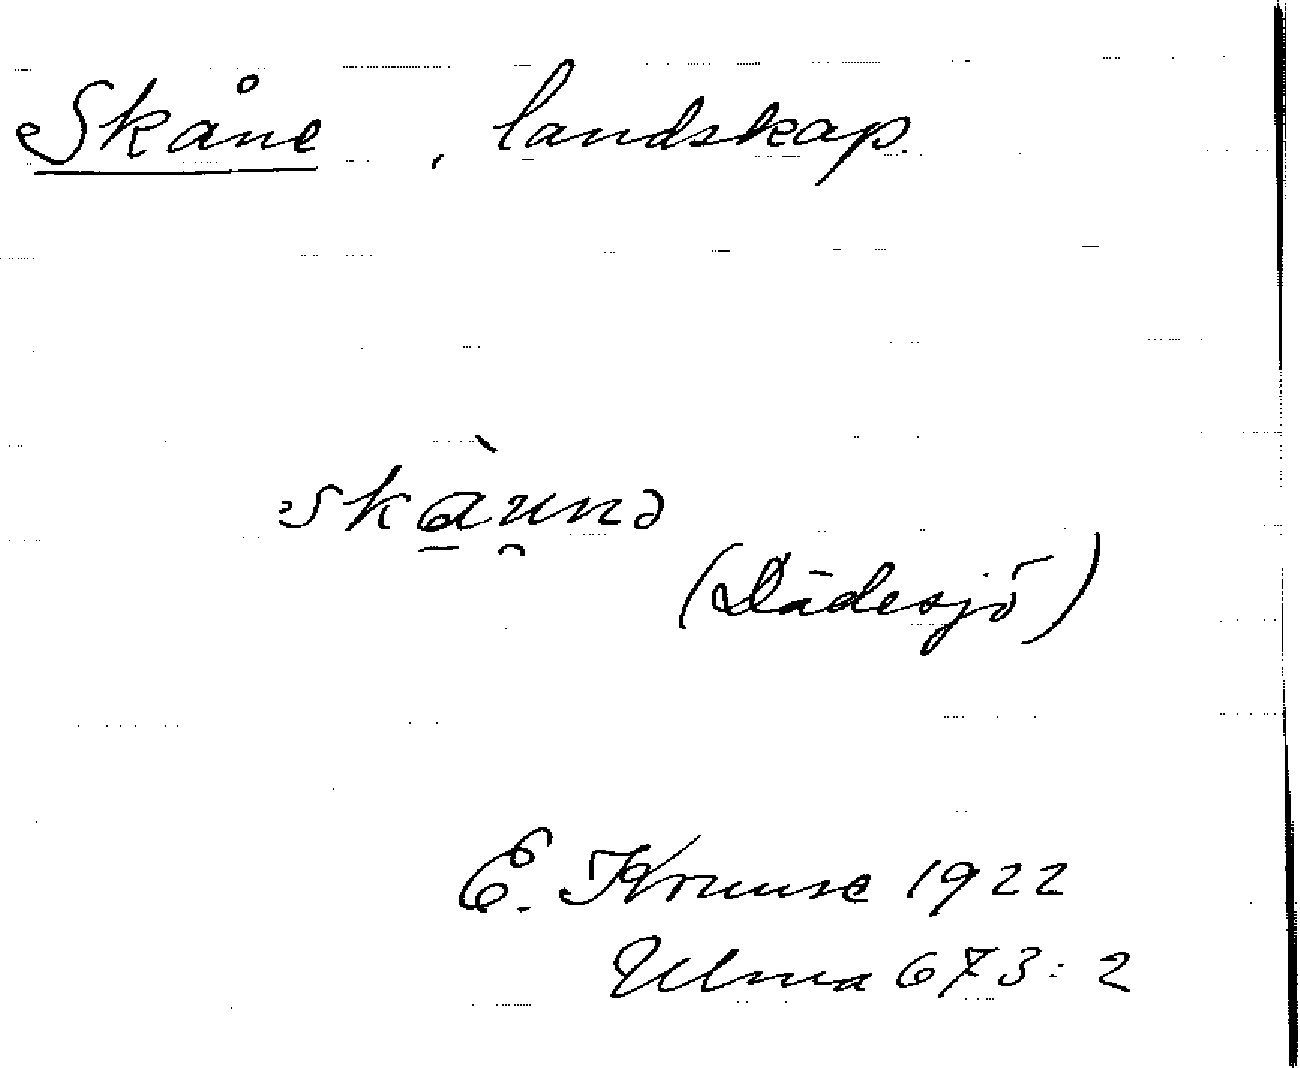 Skåne, landskap.
skàu̯nə
(Dädesjö)
E. Kruuse 1922
Ulma 673:2